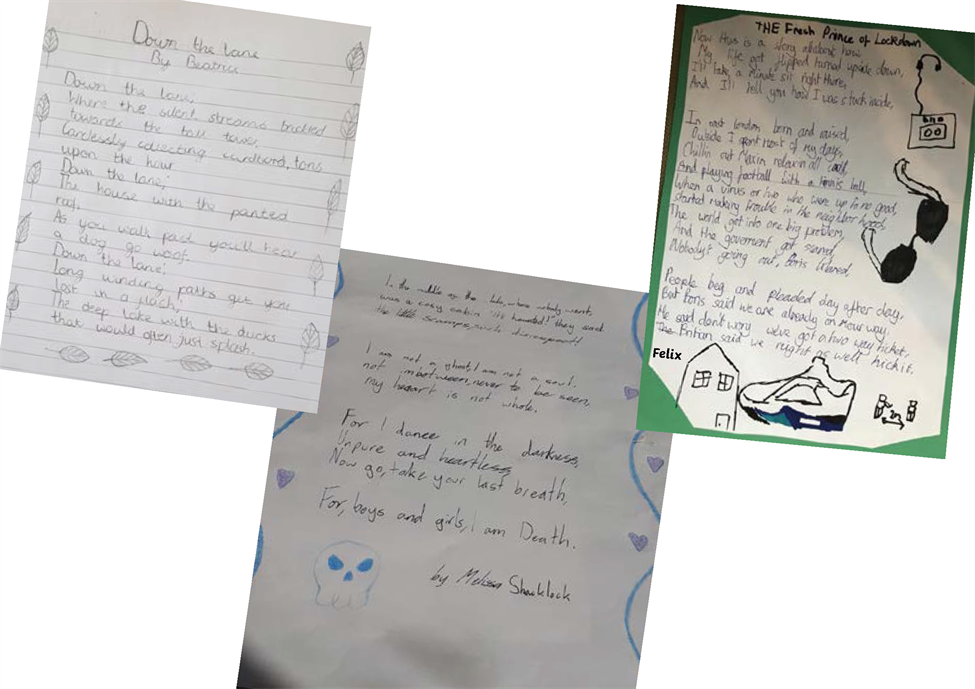 Down the lane
By Beatrice
Down the lane;
Where the silent streams trickled
towards the tall town,
collecting cardboard, tons
upon the hour
Down the lane;
The house with the painted
roof,
As you walk past you'll hear
a dog go woof.
Down the lane;
Long winding paths get you
lost in a
The deep lake with the ducks
that would often just splash.
In the middle of the lake, where nobody went,
was a cosy cabin "it's haunted!" they said
the little scamps,
I am not a ghost, I am not a soul,
not inbetween, never to be seen,
my heart is not whole.
For I dance in the darkness,
Unpure and heartless,
Now go, take your last breath,
For, boys and girls, I am Death.
by Melissa Shacklock
THE Fresh Prince of Lockdown
Now this is a story all about how
My life got flipped turned upside down,
I'll take a minute sit right there,
And I'll tell you how I was stuck inside,
In east London born and raised,
Outside I spent most of my days,
Chillin out Maxin relaxin all cool,
And playing football with a tennis ball,
When a virus or two who were up to no good,
started making trouble in the neighborhood,
The world got into one big problem,
And the goverment got scared,
Nobody's going out, Boris
People beg and pleaded day after day,
But Boris said we are already on our way,
He said don't worry we've got a two way ticket,
The Britian said we might as well kick it.
Felix
2m